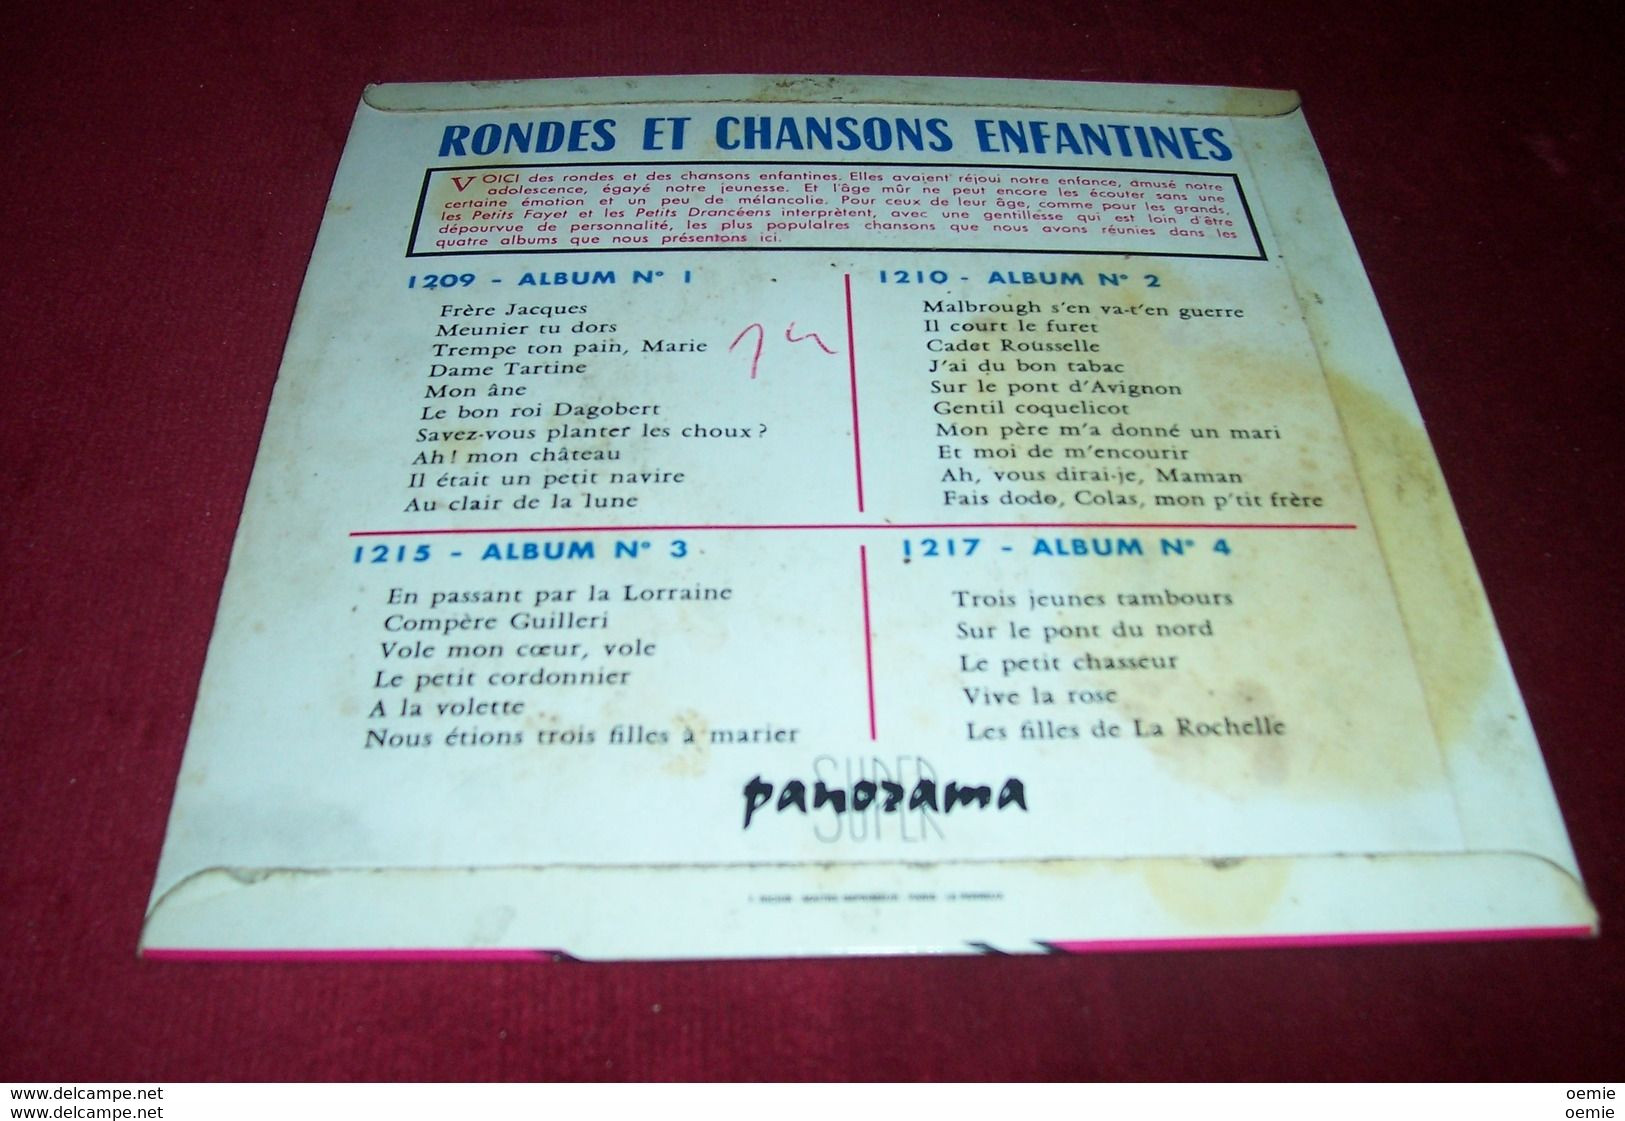 RONDES ET CHANSONS ENFANTINES
VOICI des rondes et des chansons enfantines. Elles avaient réjoui notre enfance, amusé notre
adolescence, égayé notre jeunesse. Et l'âge mûr ne peut encore les écouter sans une
certaine émotion et un peu de mélancolie. Pour ceux de leur âge, comme pour les grands,
les Petits Fayet et les Petits Drancéens interprètent, avec une gentillesse qui est loin d'être
dépourvue de personnalité, les plus populaires chansons que nous avons réunies dans les
quatre albums que nous présentons ici.
1209 - ALBUM N° 1
Frère Jacques
Meunier tu dors
Trempe ton pain, Marie
Dame Tartine
Mon âne
Le bon roi Dagobert
Savez-vous planter les choux ?
Ah ! mon château
Il était un petit navire
Au clair de la lune
1210 - ALBUM N° 2
Malbrough s'en va-t'en guerre
Il court le furet
Cadet Rousselle
J'ai du bon tabac
Sur le pont d'Avignon
Gentil coquelicot
Mon père m'a donné un mari
Et moi de m'encourir
Ah, vous dirai-je, Maman
Fais dodo, Colas, mon p'tit frère
1215 - ALBUM N° 3
En passant par la Lorraine
Compère Guilleri
Vole mon cœur, vole
Le petit cordonnier
A la volette
Nous étions trois filles à marier
1217 - ALBUM N° 4
Trois jeunes tambours
Sur le pont du nord
Le petit chasseur
Vive la rose
Les filles de La Rochelle
SUPER
panorama
SUPER
www.delcampe.net
www.delcampe.net
oemie
oemie